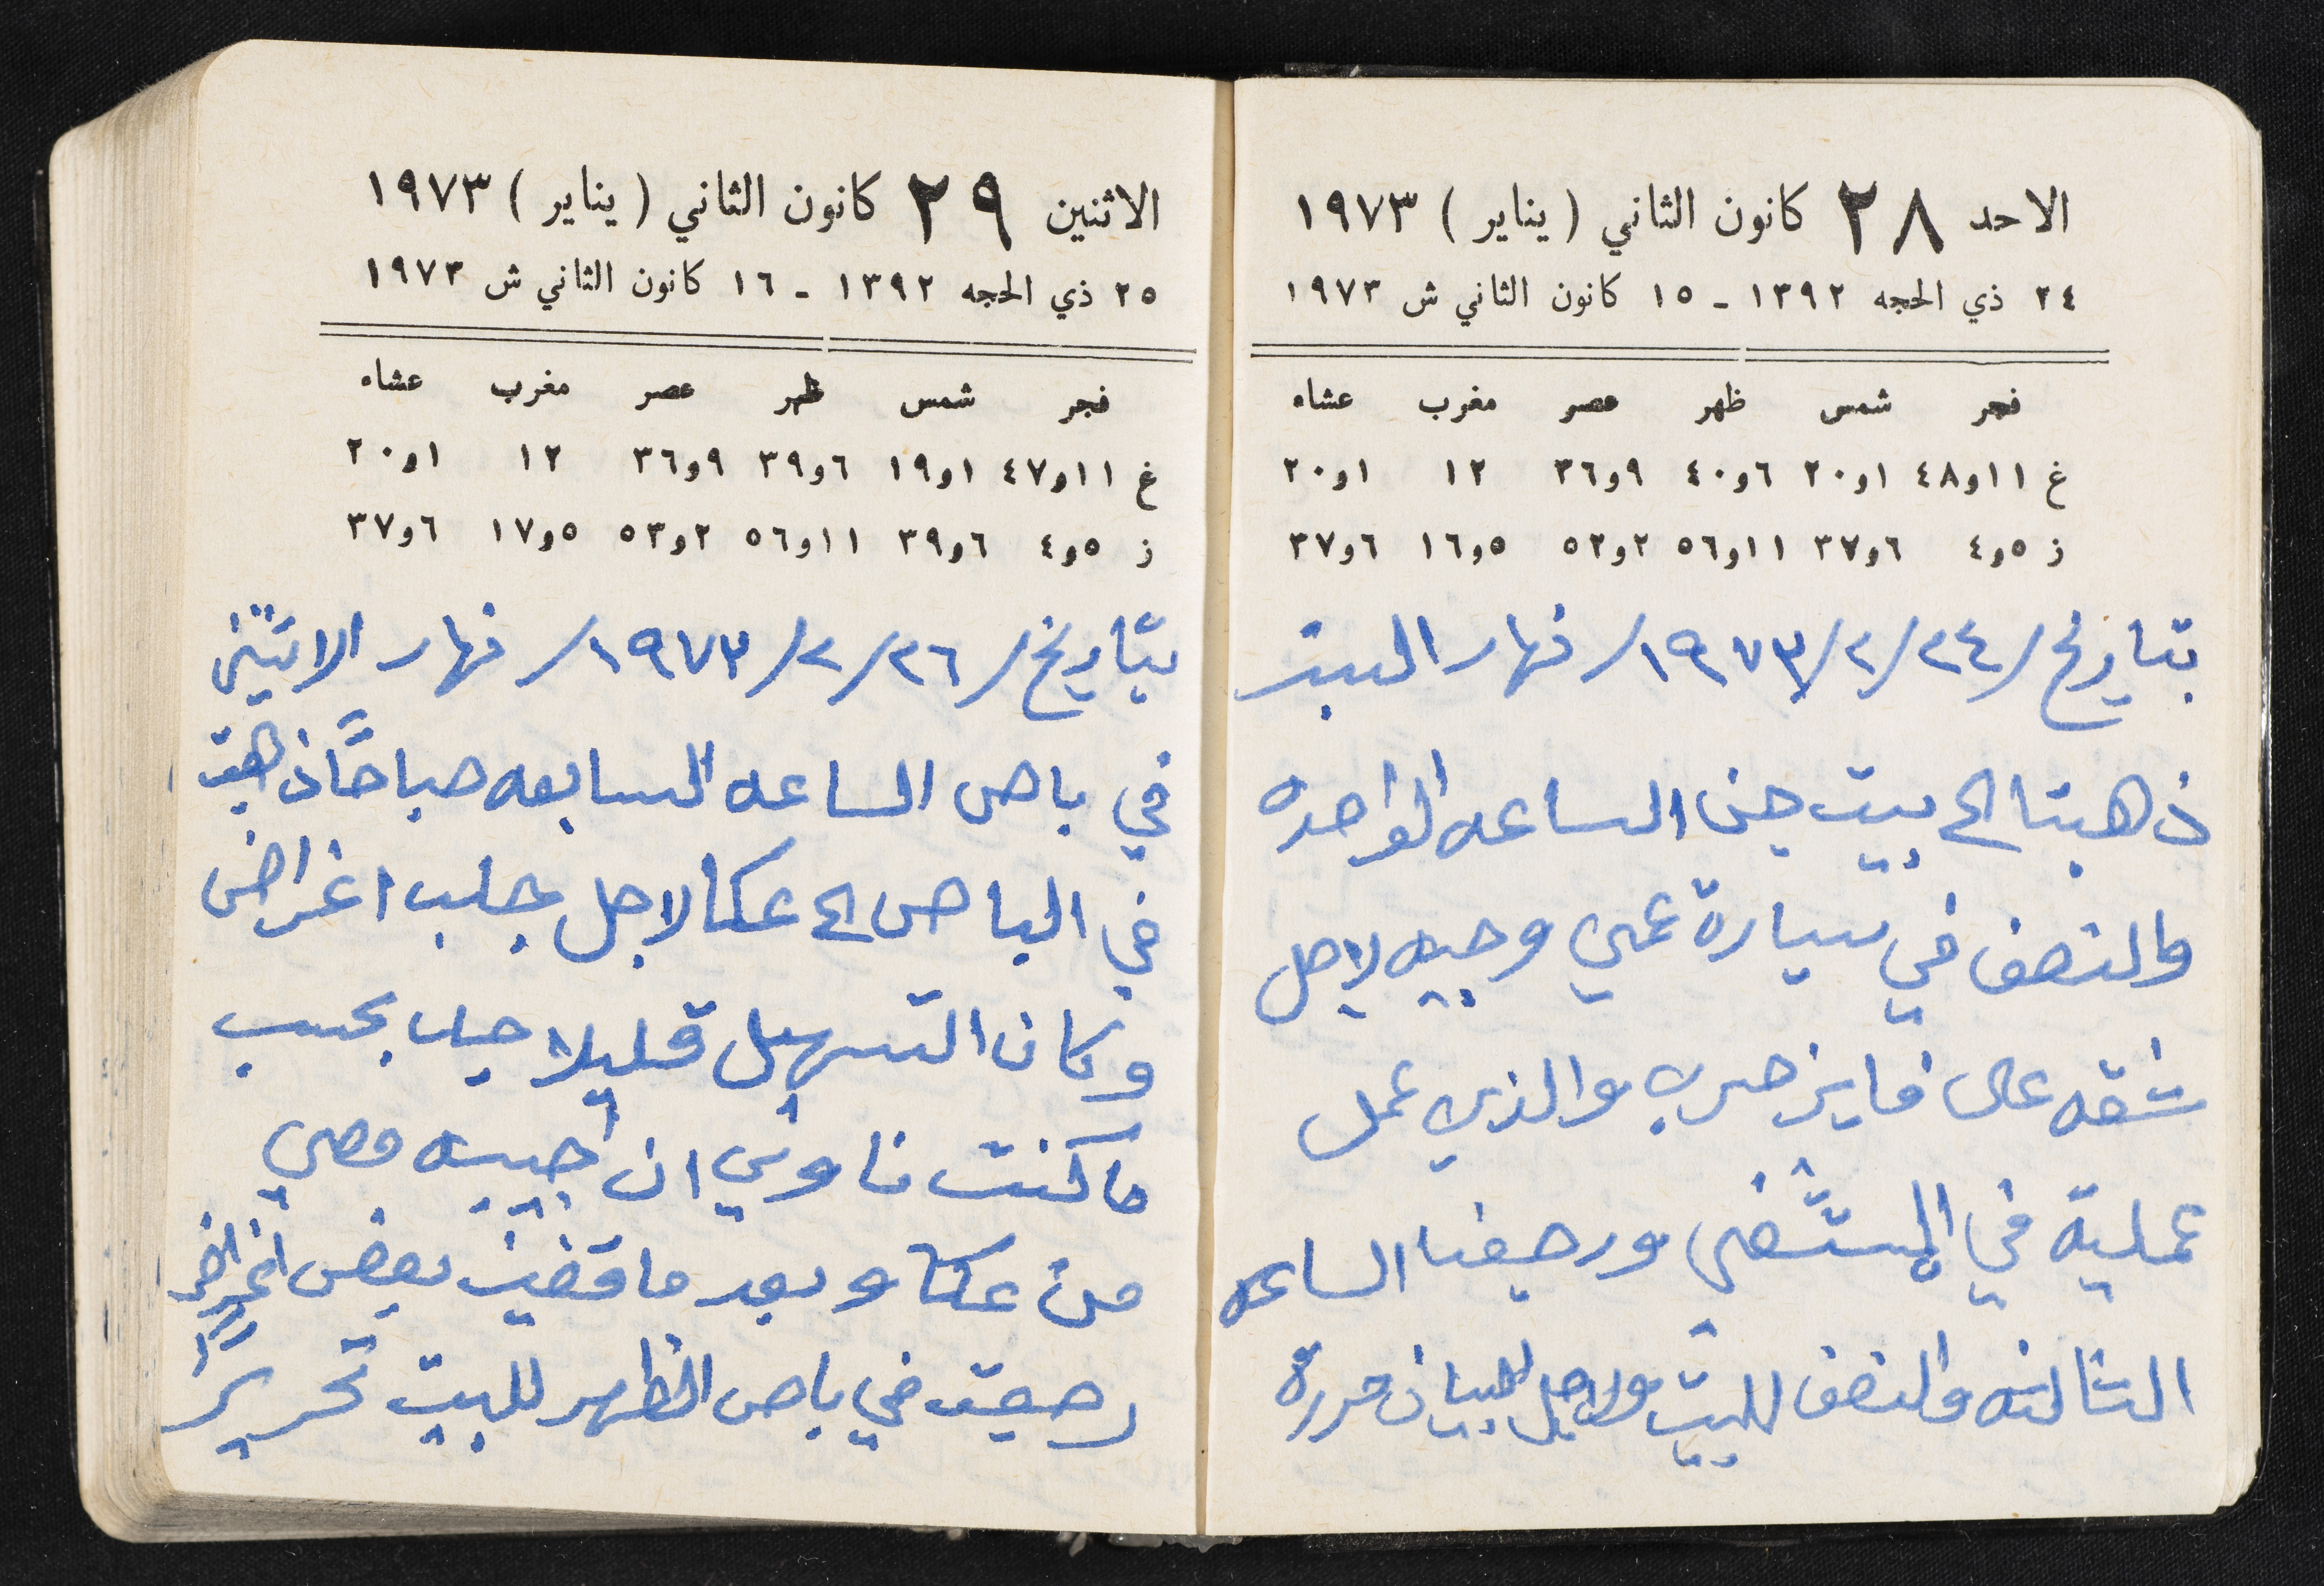 الاحد ٢٨ كانون الثاني ( يناير ) ١٩٧٣
٢٤ ذي الحجه ١٣٩٢ - ١٥ كانون الثاني ش ١٩٧٣
فجر شمس ظهر عصر مغرب عشاه
غ ١١و٤٨ ١و٢٠ ٦و٤٠ ٩و٣٦ ١٢ ١و٢٠
ز ٥و٤ ٦و٣٧ ١١و٥٦ ٢و٥٣ ٥و١٦ ٦و٣٧
بتاريخ/٢٤/٢/١٩٧٣/ نهار السبت
ذهبنا الى بيت جن الساعه الواحده
والنصف في سيارة عمي وجيه لاجل
شقه على فايز حرب والذي عمل
عملية في المستشفى ورجعنا الساعه
الثالثه والنصف للبيت ولاجل البيان حررة
الاثنين ٢٩ كانون الثاني ( يناير ) ١٩٧٣
٢٥ ذي الحجه ١٣٩٢ - ١٦ كانون الثاني ش ١٩٧٣
فجر شمس ظهر عصر مغرب عشاه
غ ١١و٤٧ ١و١٩ ٦و٣٩ ٩و٣٦ ١٢ ١و٢٠
ز ٥و٤ ٦و٣٩ ١١و٥٦ ٢و٥٣ ٥و١٧ ٦و٣٧
بتاريخ/٢٦/٢/١٩٧٣/ نهار الاثنين
في باص الساعه السابعه صباحاً ذهبت
في الباص الى عكا لاجل جلب اغراض
وكان التسهيل قليلا حيث بحسب
ما كنت ناوي ان اجيبه معي
من عكا وبعد ما قضيت بعض اغراض
رجعت في باص الظهر للبيت تحريراً